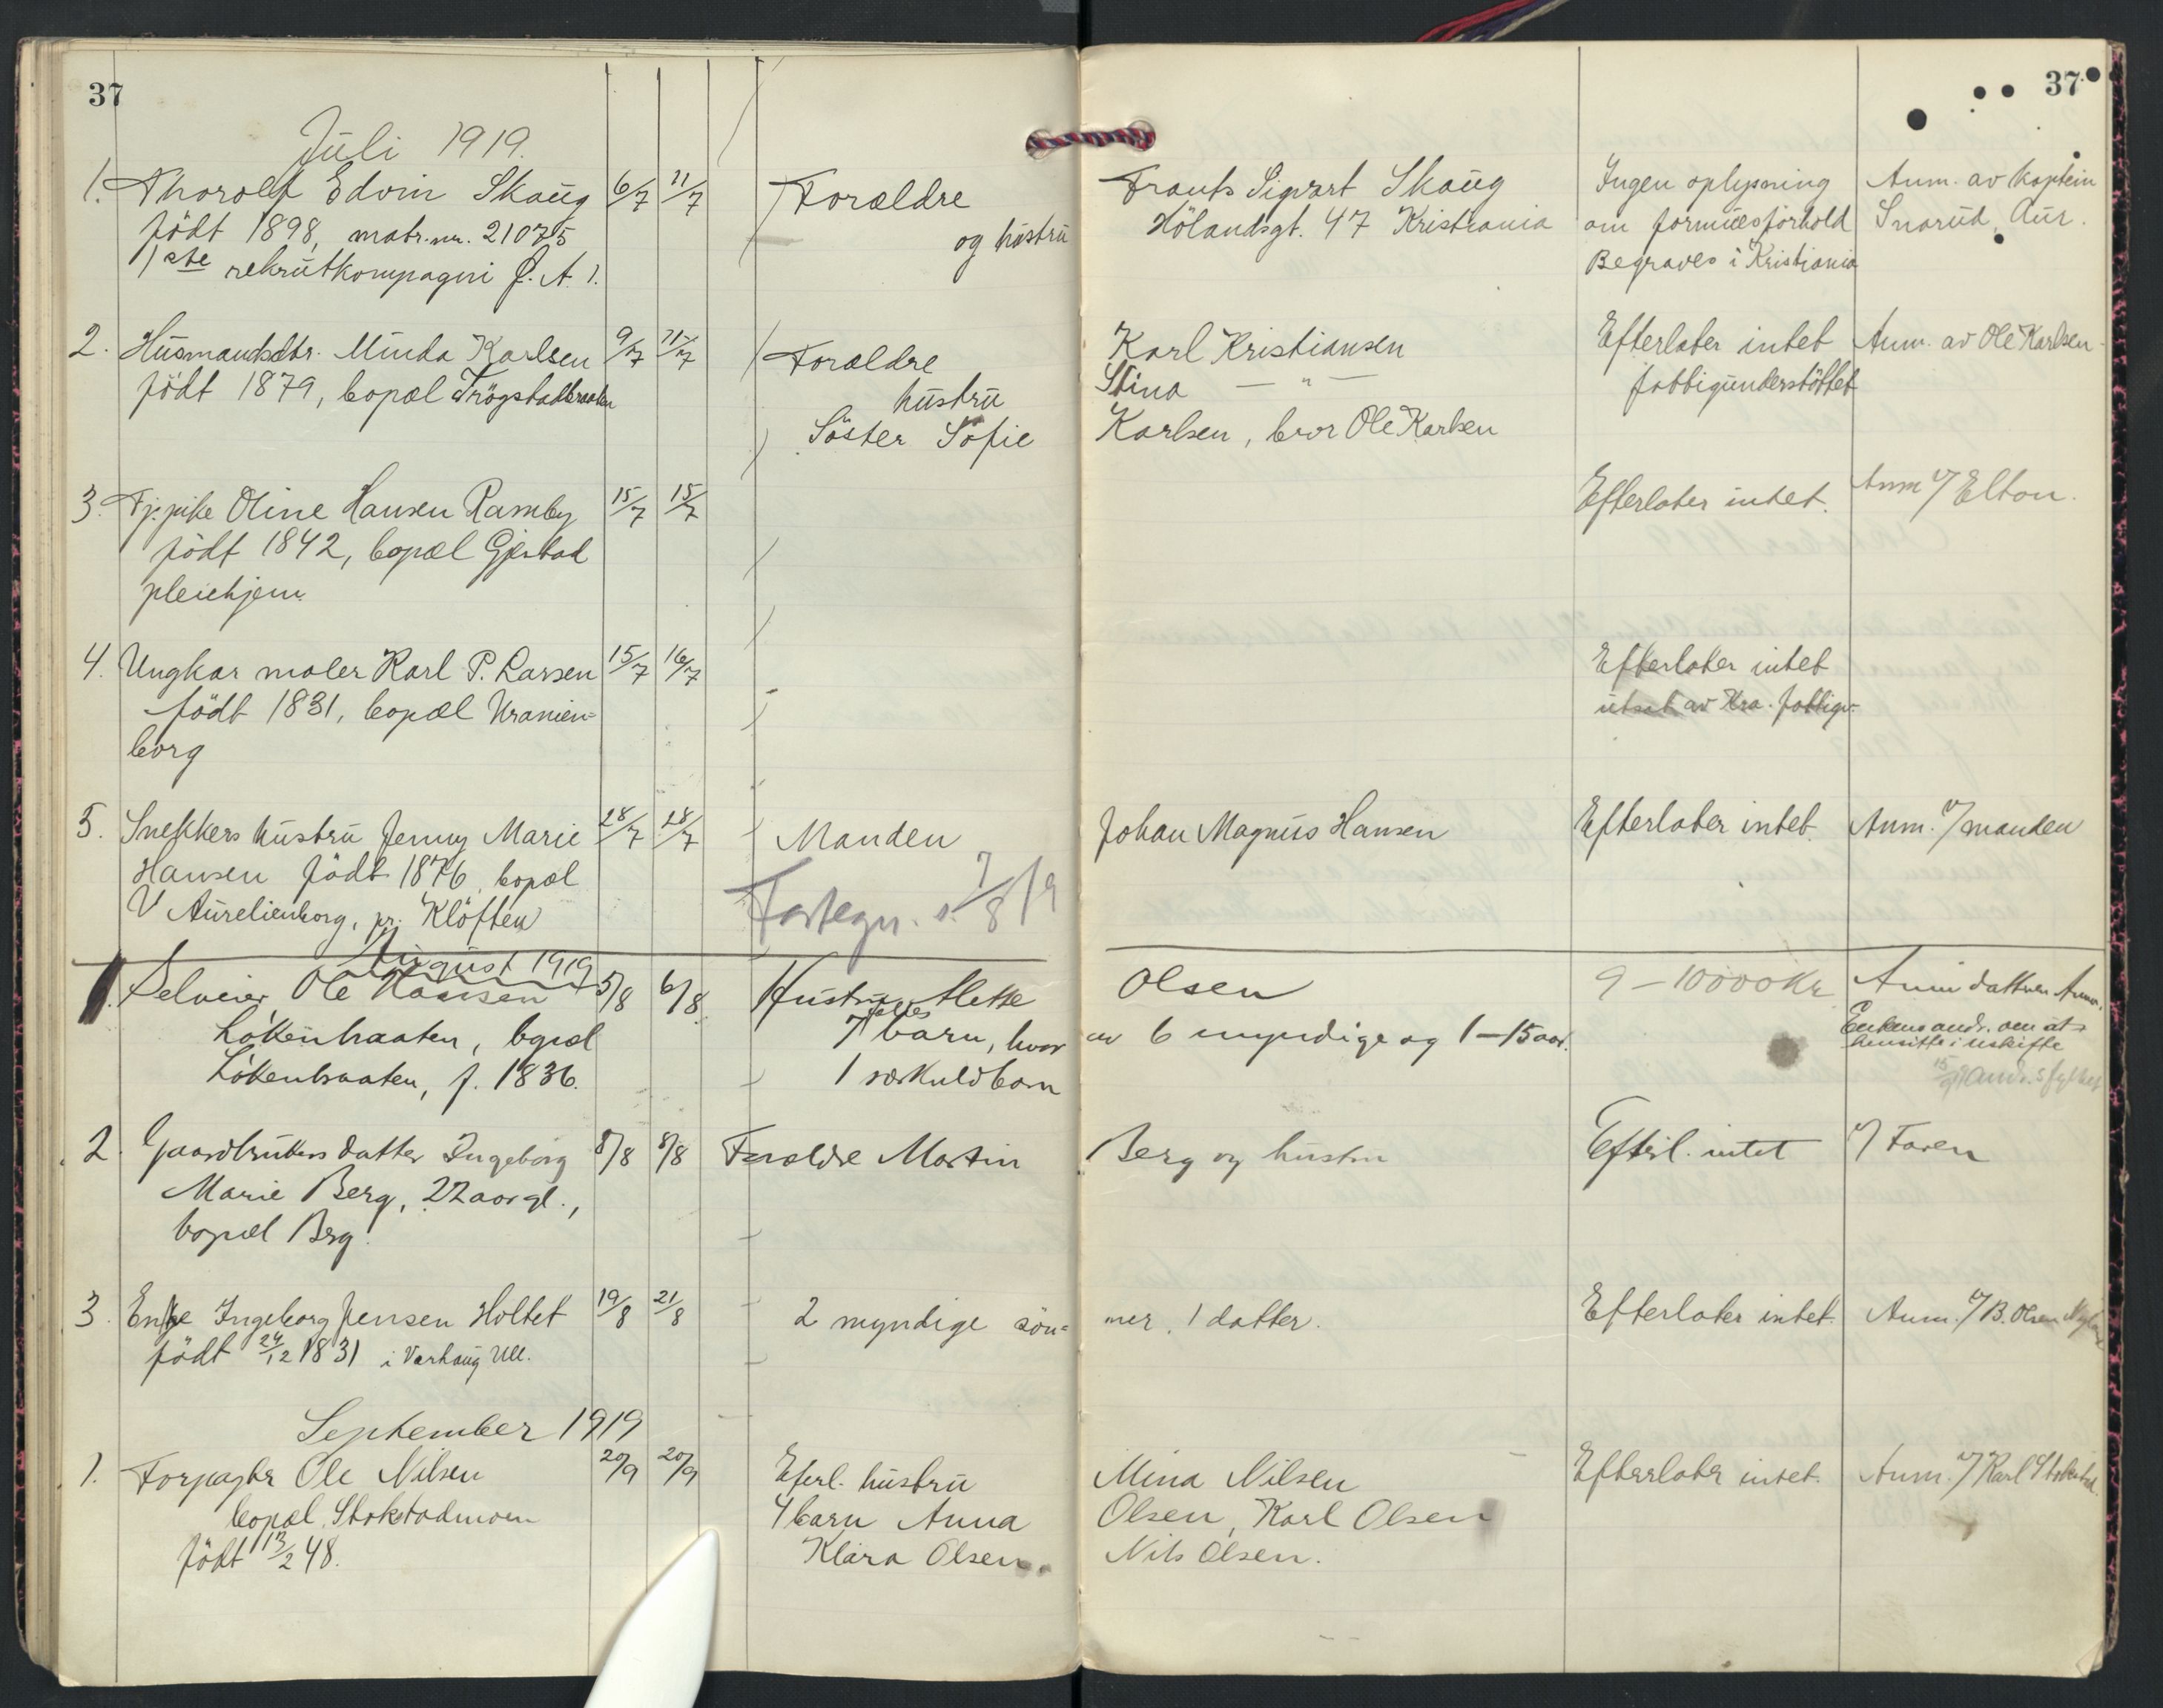 37
37
Juli 1919.
1. Thorolf Edvin Skaug 6/7 11/7 Forældre Frants Sigvart Skaug Ingen oplysning Anm. av kaptein
født 1898, matr.nr. 21075 og hustru Hölandsgt. 47 Kristiania om formuesforhold Snarud, Aur.
1ste rekrutkompagni J.A.1. Begraves i Kristiania
2. Husmandsdtr. Minda Karlsen 9/7 11/7 Forældre Karl Kristiansen Efterlater intet Anm. av Ole Karlsen
født 1879, bopæl Trögstadbraaten hustru Stina — " — fattigunderstöttet
Söster Sofie Karlsen, bror Ole Karlsen
3. Fr. pike Oline Hansen Ramby 15/7 15/7 Efterlater intet. Anm v/ Elton.
født 1842, bopæl Gjestad
pleiehjem.
4. Ungkar maler Karl P. Larsen 15/7 16/7 Efterlater intet
født 1831, bopæl Uranien= utsat av Kra. fattigv.
borg
5. Snekkers hustru Jenny Marie 28/7 28/7 Manden Johan Magnus Hansen Efterlater intet. Anm. v/ manden
Hansen født 1876, bopæl
V Aurelienborg, pr. Klöften Fortegn. s. 7/8 19
August 1919
1. Selveier Ole Hansen 5/8 6/8 Hustru Mette Olsen 9 – 10000 Kr Anm datteren Anna.
Lökenbraaten, bopæl 7 fælles barn, hvor av 6 myndige og 1 – 15 aar. Enkens andr. om at
Lökenbraaten, f. 1836. 1 særkuldbarn hensitte i uskifte
2. Gaardbrukers datter Ingeborg 8/8 8/8 Forældre Martin Berg og hustru Efterl. intet v/ Faren
Marie Berg, 22 aar gl.,
bopæl Berg.
3. Enke Ingeborg Jensen Holtet 19/8 21/8 2 myndige sön= ner, 1 datter. Efterlater intet. Anm. v/ B. Olsen
født 24/12 1831 i Varhaug Ull.
September 1919
1. Forpagter Ole Nilsen 20/9 20/9 Eferl. hustru Mina Nilsen Efterlater intet. Anm. v/ Karl Stokstad.
bopæl Stokstadmoen 4 barn Anna Olsen, Karl Olsen
født 13/2 48. Klara Olsen. Nils Olsen.